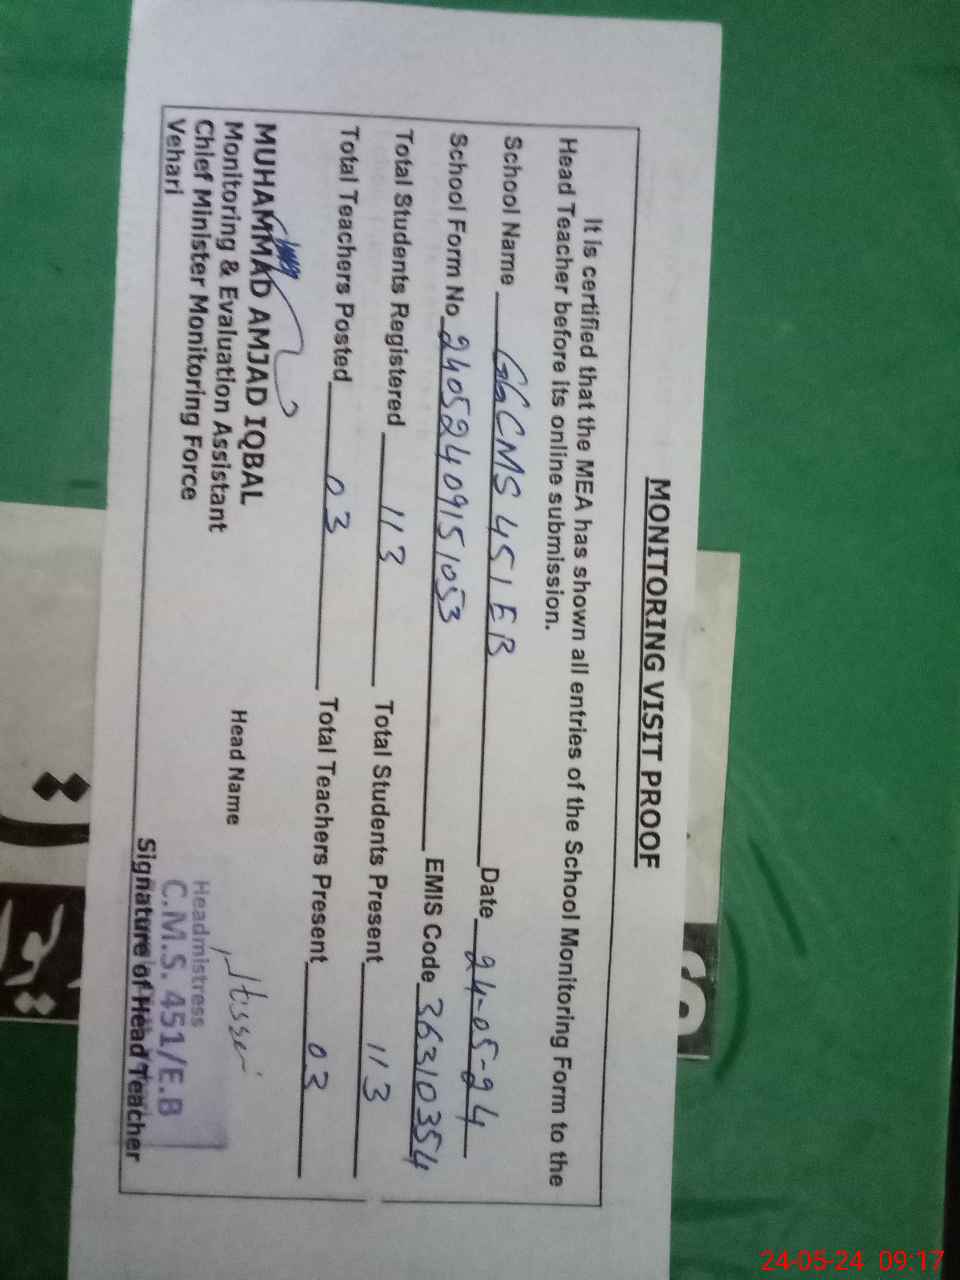 MONITORING VISIT PROOF
It is certified that the MEA has shown all entries of the School Monitoring Form to the
Head Teacher before its online submission.
School Name GGCMS 451EB Date 24-05-24
School Form No 24052409151053 EMIS Code 36310354
Total Students Registered 113 Total Students Present 113
Total Teachers Posted 03 Total Teachers Present 03
MUHAMMAD AMJAD IQBAL
Monitoring & Evaluation Assistant
Chief Minister Monitoring Force
Vehari
Head Name
Headmistress
C.M.S. 451/E.B
Signature of Head Teacher
24-05-24 09:17